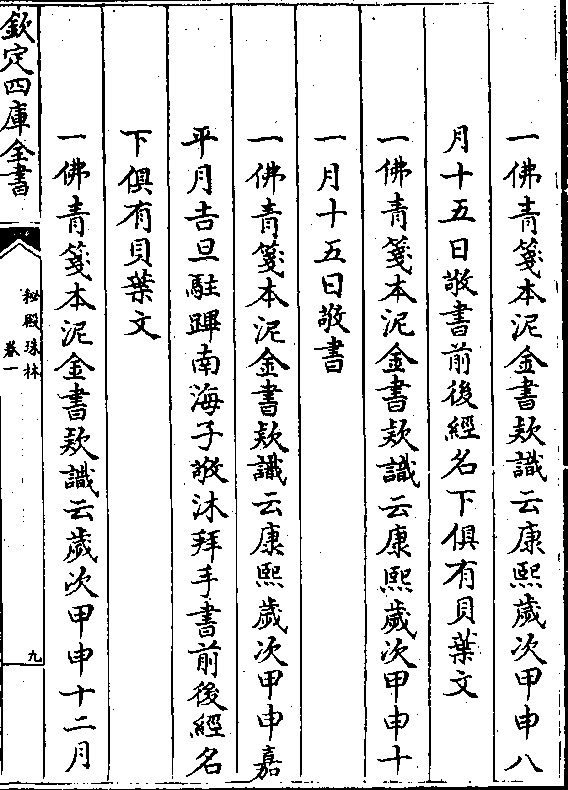 一佛青箋本泥金書款識云康熙歲次甲申八
月十五日敬書前後經名下俱有貝葉文
一佛青箋本泥金書款識云康熙歲次甲申十
一月十五日敬書
一佛青箋本泥金書款識云康熙歲次甲申嘉
平月吉旦駐蹕南海子敬沐拜手書前後經名
下俱有貝葉文
一佛青箋本泥金書款識云歲次甲申十二月
欽定四庫全書
秘殿珠林
卷一
九